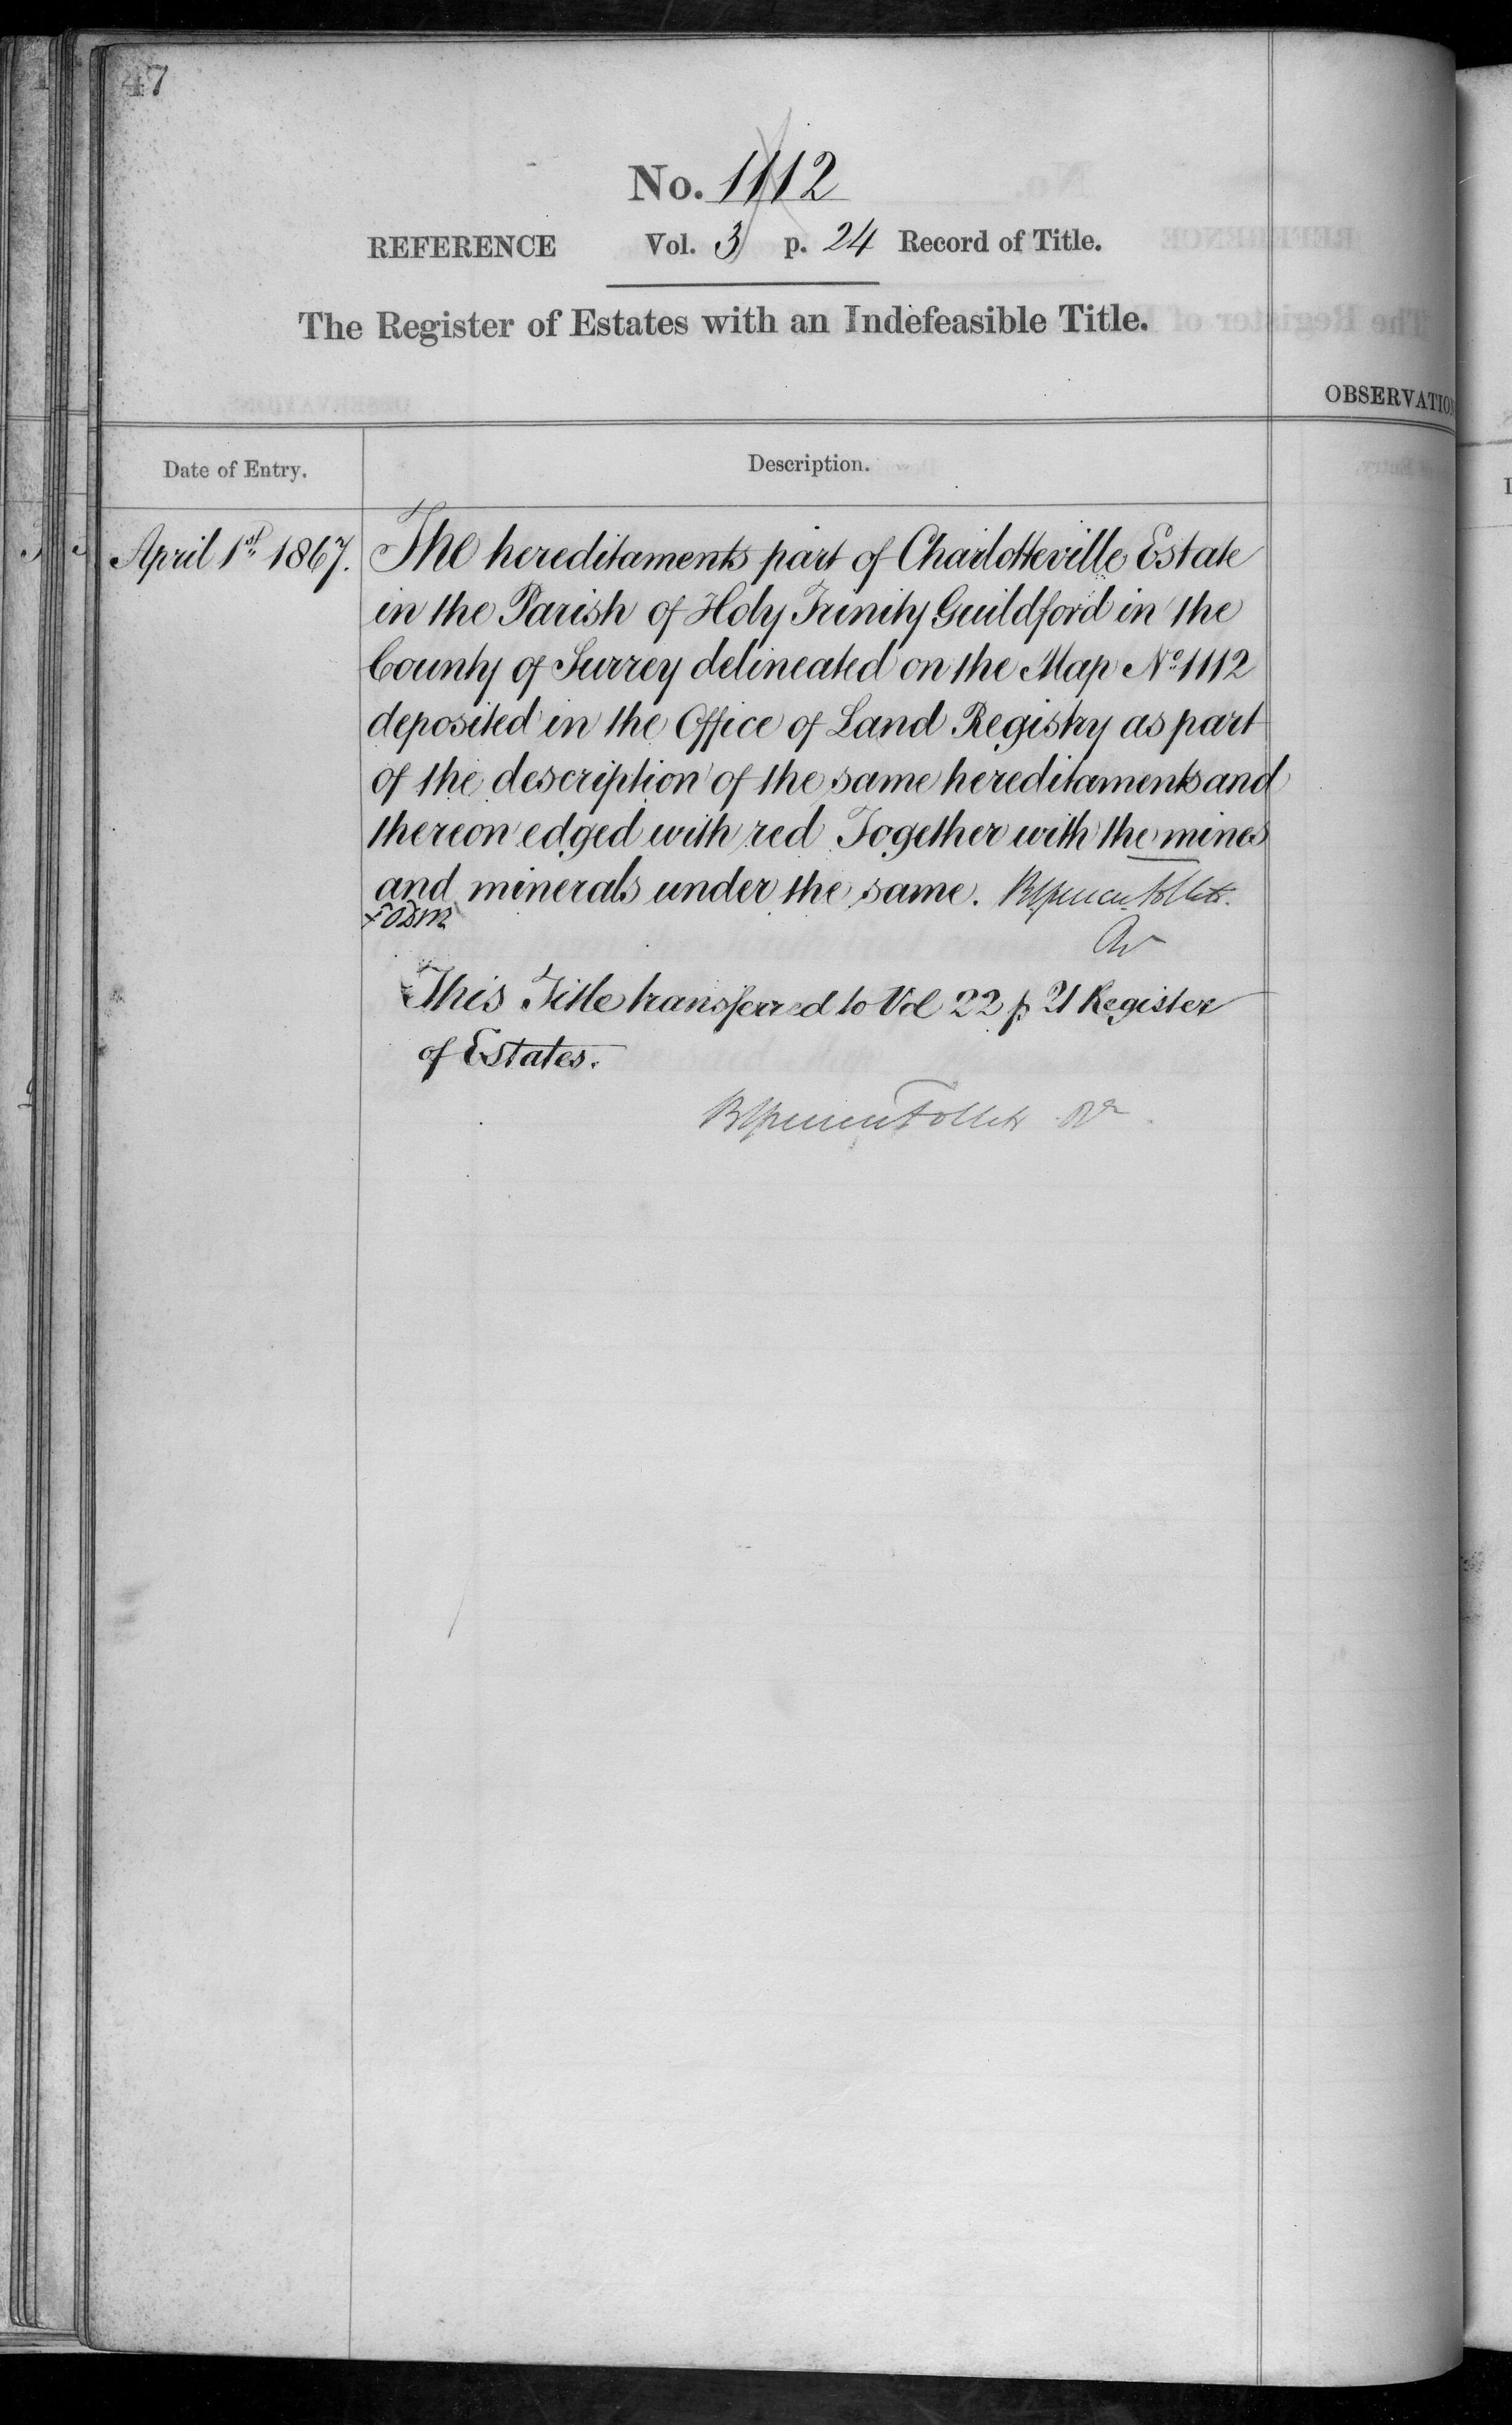 47
No. 1112
REFERENCE Vol. 3 p. 24 Record of Title.
The Register of Estates with an Indefeasible Title.
OBSERVATION
Date of Entry.
Description.
April 1st 1867.
The hereditaments part of Charlotteville Estate
in the Parish of Holy Trinity Guildford in the
County of Surrey delineated on the Map No. 1112
deposited in the Office of Land Registry as part
of the description of the same hereditaments and
thereon edged with red Together with the mines
and minerals under the same.
This Title transferred to Vol 22 p 21 Register
of Estates.